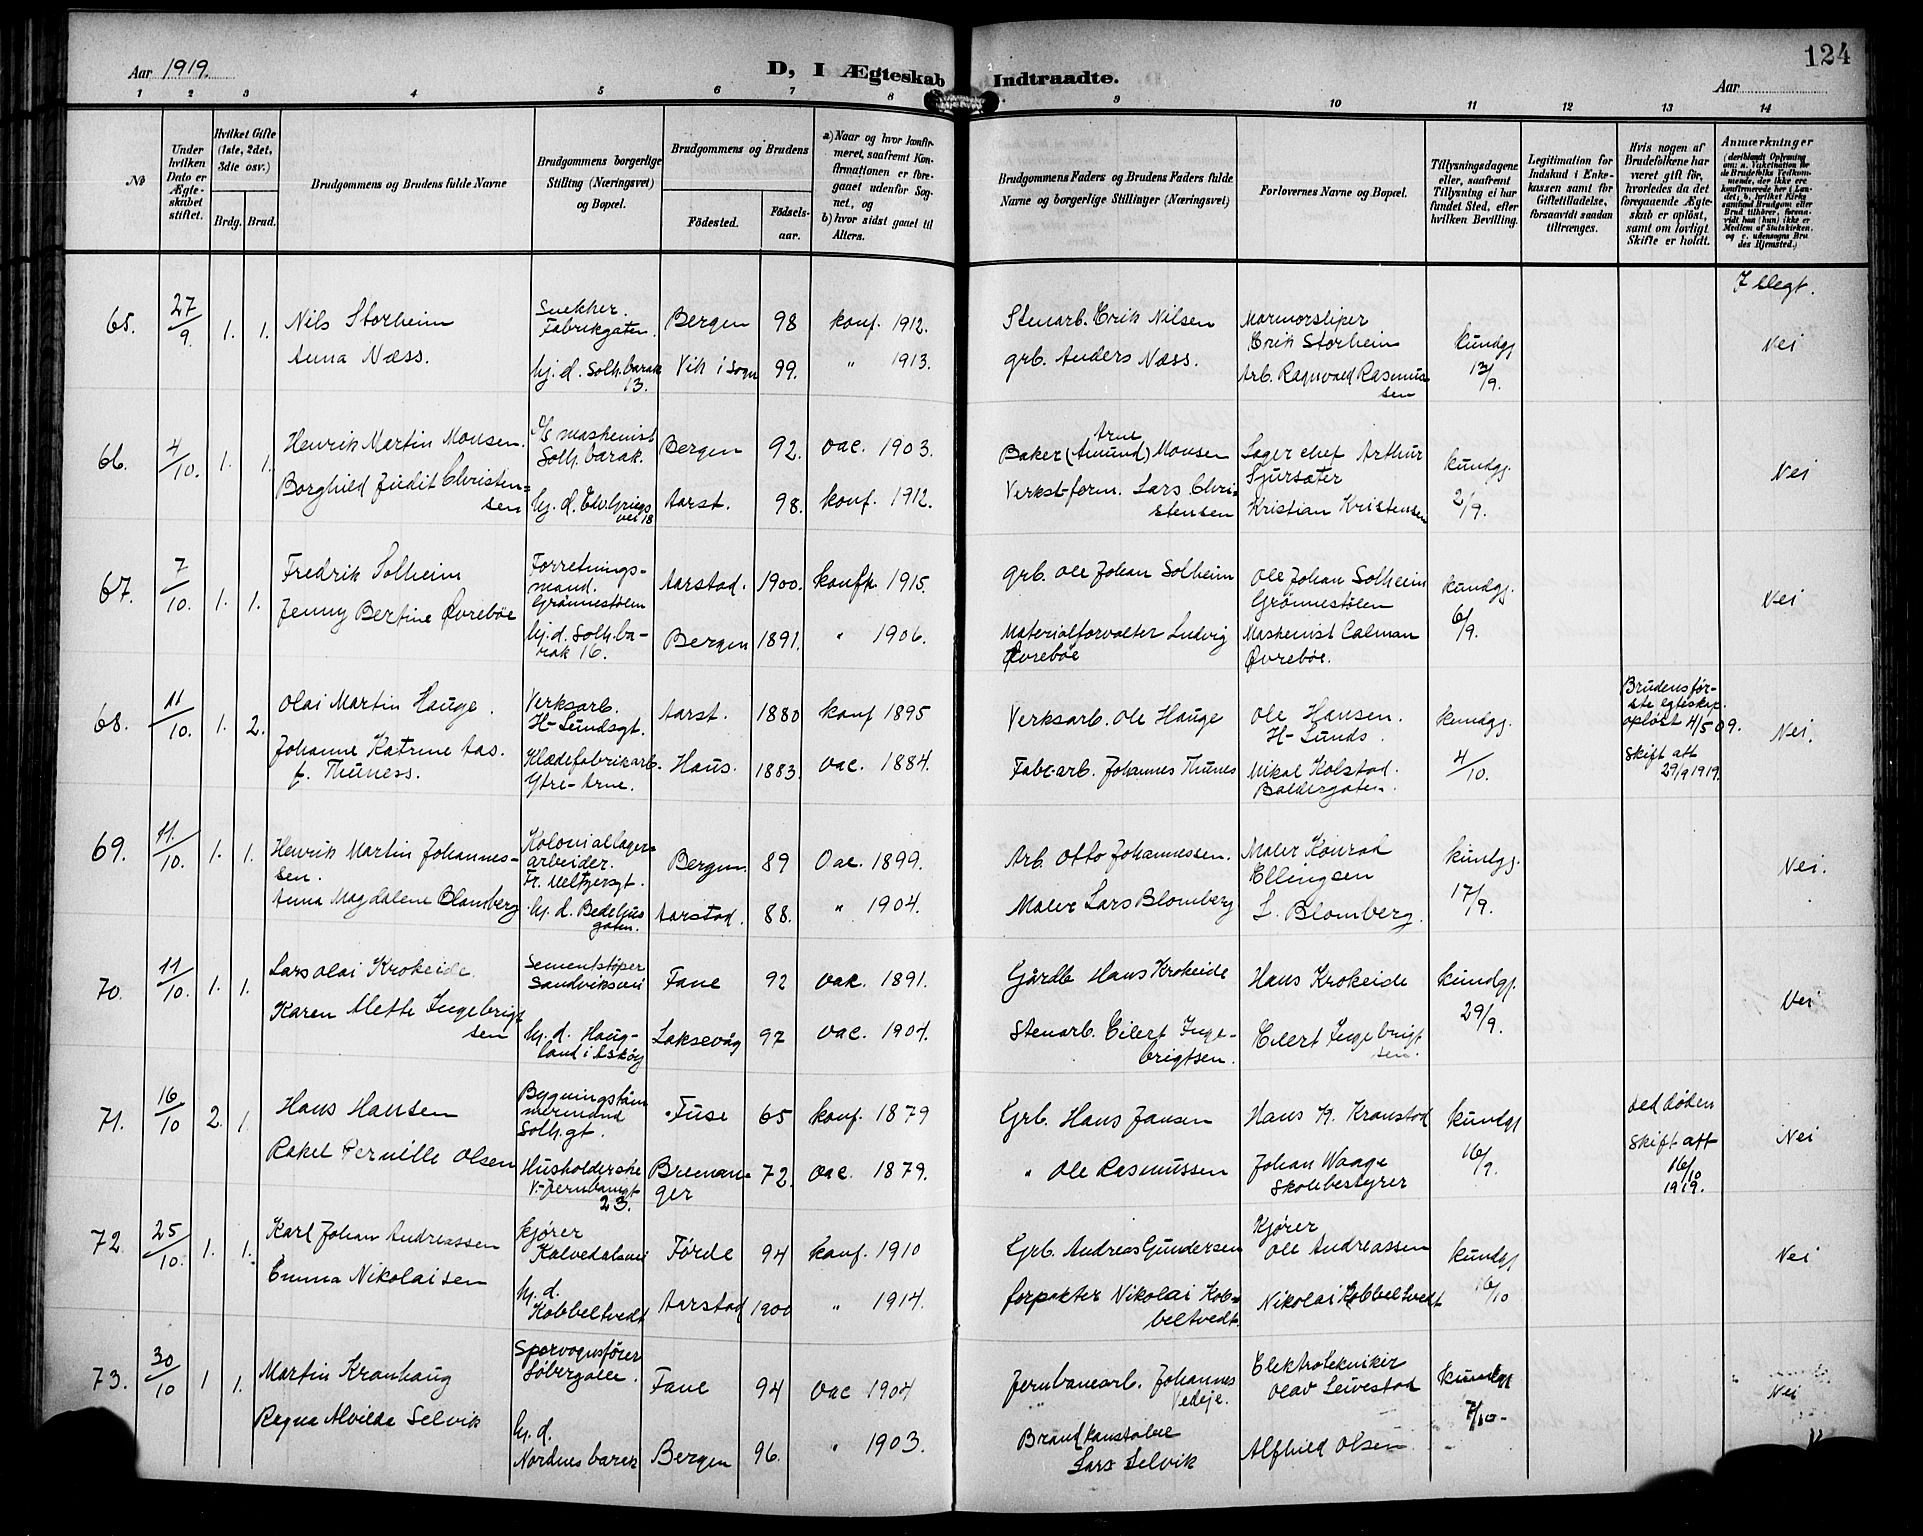 124
Aar 1919.
D, I Ægteskab Indtraadte.
Aar
1 2 3 4 5 6 7 8 9 10 11 12 13 14
No
Under hvilken Dato er Ægteskabet stiftet.
Hvilket Gifte (1ste, 2det, 3die osv.)
Brdg. Brud.
Brudgommens og Brudens fulde Navne
Brudgommens borgerlige Stilling (Næringsvei) og Bopæl.
Brudgommens og Brudens
Födested.
Födselsaar.
a) Naar og hvor konfirmeret, saafremt Konfirmationen er foregaaet udenfor Sognet, og
b) hvor sidst gaaet til Alters.
Brudgommens Faders og Brudens Faders fulde Navne og borgerlige Stillinger (Næringsvei)
Forlovernes Navne og Bopæl.
Tillysningsdagene eller, saafremt Tillysning ei har fundet Sted, efter hvilken Bevilling.
Legitimation for Indskud i Enkekassen samt for Giftetilladelse, forsaavidt saadan tiltrænges.
Hvis nogen af Brudefolkene har været gift før, hvorledes da det foregaaende Ægteskab er oplöst, samt om lovligt Skifte er holdt.
Anmerkninger
(deriblandt Oplysning om: a. Vaksination for de Brudefolks Vedkommende, der ikke ere konfirmerede her i Landet; b. hvilket Kirkesamfund Brudgom eller Brud tilhörer, forsaavidt han (hun) ikke er Medlem af Statskirken, og c. udensogns Brudes Hjemsted.)
65. 27/9. 1. 1.
Nils Storheim
Snekker. Fabrikgaten.
Bergen 98 konf. 1912.
Stenarb. Erik Nilsen
Marmorsliper Erik Storheim
kundgj 13/9.
Nei
Anna Næss.
hj. d. Solh. barak 13.
Vik i Sogn 99. " 1913.
grb. Anders Næss.
Arb. Ragnvald Rasmussen
66. 4/10. 1. 1.
Henrik Martin Monsen.
maskenist Solh. barak.
Bergen 92. vac. 1903.
Arne
Baker (Amund) Monsen
Lager chef Arthur Sjursæter
kundgj. 2/9.
Nei
Borghild Judit Christensen
hj. d. Edv. Griegs vei 18
Aarst. 98. konf. 1912.
Verkst-form. Lars Christensen
Kristian Kristensen
67. 7/10. 1. 1.
Fredrik Solheim
Forretningsmand. Grønnestølen
Aarstad. 1900. konfh. 1915.
grb. Ole Johan Solheim
Ole Johan Solheim Grønnestølen
kundgj. 6/9.
Nei
Jenny Bertine Øvrebøe
hj. d. Solh. barak 16.
Bergen 1891. " 1906.
Materialforvalter Ludvig Øvrebøe
Maskenist Calman Øvrebøe.
68. 11/10. 1. 2.
Olai Martin Hauge.
Verksarb. H-Lundsgt.
Aarst. 1880 konf 1895
Verksarb. Ole Hauge
Ole Hansen. H-Lunds.
kundgj. 4/10.
Brudens første egteskap. opløst 4/5 09.
Skift att 29/9 1919.
Nei.
Johanne Katrine Aas. f. Thuness.
Klædefabrikarb. Ytre-Arne.
Haus. 1883. vac. 1884.
Fabr-arb. Johannes Thunes
Mikal Kolstad. Baldersgaten.
69. 11/10. 1. 1.
Henrik Martin Johannessen.
Koloniallagerarbeider. Fr. Meltzersgt.
Bergen. 89 Vac. 1899.
Arb. Otto Johannessen.
Maler Konrad Ellingsen
kundgj. 17/9.
Nei.
Anna Magdalene Blomberg
hj. d. Bedehusgaten.
Aarstad. 88. " 1904.
Maler Lars Blomberg
L. Blomberg.
70. 11/10. 1. 1.
Lars Olai Krokeide.
Sementstøper Sandviksvei
Fane 92 vac. 1891.
Gårdb Hans Krokeide
Hans Krokeide
kundgj. 29/9.
Nei
Karen Mette Ingebrigtsen
hj. d. Haugland i Askøy
Laksevåg 97 vac. 1904.
Stenarb. Eilert Ingebrigtsen.
Eilert Ingebrigtsen.
71. 16/10 2. 1.
Hans Hansen
Bygningstømmermand Solh. gt.
Fuse 65 konf. 1879
Grb. Hans Jansen
Hans H. Kronstad
kundgj 16/9.
ved døden
Skift att 16/10 1919.
Nei
Rakel Pernille Olsen
Husholderske V-Jernbangt 23.
Bremanger 72. vac. 1879.
" Ole Rasmussen
Johan Waage Skolebestyrer
72. 25/10. 1. 1.
Karl Johan Andreassen
kjører Kalvedalsvei
Førde 94 konf. 1910
Grb. Andreas Gundersen
Kjører Ole Andreassen
kundgj 16/10
Nei
Emma Nikolaisen
hj. d. Kobbeltvedt
Aarstad 1900 " 1914.
forpakter Nikolai Kobbeltvedt.
Nikolai Kobbeltvedt
73. 30/10 1 1.
Martin Kranhaug
Sporvognsfører Løbergalee.
Fane 94 vac 1904
Jernbanearb. Johannes Vedeje.
Elektrotekniker Olav Leivestad
kundgj 7/10-
Nei
Regna Alvilda Selvik
hj. d. Nordnes barak
Bergen 96. " 1903.
Brandkonstabel Lars Selvik
Alfhild Olsen